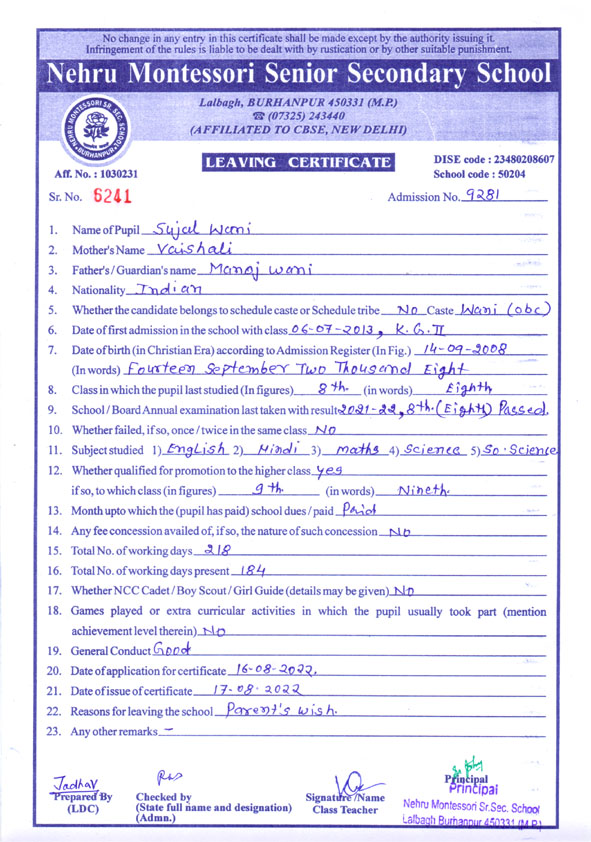 No change in any entry in this certificate shall be made except by the authority issuing it.
Infringement of the rules is liable to be dealt with by rustication or by other suitable punishment.
Nehru Montessori Senior Secondary School
Lalbagh, BURHANPUR 450331 (M.P.)
☎ (07325) 243440
(AFFILIATED TO CBSE, NEW DELHI)
NEHRU MONTESSORI SR. SEC. SCHOOL
BURHANPUR
LEAVING CERTIFICATE
DISE code : 23480208607
Aff. No. : 1030231 School code : 50204
Sr. No. 6241 Admission No. 9281
1. Name of Pupil Sujal Wani
2. Mother's Name Vaishali
3. Father's / Guardian's name Manoj wani
4. Nationality Indian
5. Whether the candidate belongs to schedule caste or Schedule tribe No Caste Wani (obc)
6. Date of first admission in the school with class 06-07-2013, K.G.II
7. Date of birth (in Christian Era) according to Admission Register (In Fig.) 14-09-2008
(In words) Fourteen September Two Thousand Eight
8. Class in which the pupil last studied (In figures) 8th. (in words) Eighth
9. School / Board Annual examination last taken with result 2021-22, 8th. (Eighth) Passed.
10. Whether failed, if so, once / twice in the same class No
11. Subject studied 1) English 2) Hindi 3) maths 4) Science 5) So. Science
12. Whether qualified for promotion to the higher class yes
if so, to which class (in figures) 9th. (in words) Nineth.
13. Month upto which the (pupil has paid) school dues / paid Paid
14. Any fee concession availed of, if so, the nature of such concession No
15. Total No. of working days 218
16. Total No. of working days present 184
17. Whether NCC Cadet / Boy Scout / Girl Guide (details may be given) No
18. Games played or extra curricular activities in which the pupil usually took part (mention
achievement level therein) No
19. General Conduct Good
20. Date of application for certificate 16-08-2022.
21. Date of issue of certificate 17-08-2022
22. Reasons for leaving the school Parent's wish.
23. Any other remarks –
Jadhav
Prepared By
(LDC)
Checked by
(State full name and designation)
(Admn.)
Signature / Name
Class Teacher
Principal
Principal
Nehru Montessori Sr.Sec. School
Lalbagh Burhanpur 450331 (M.P.)